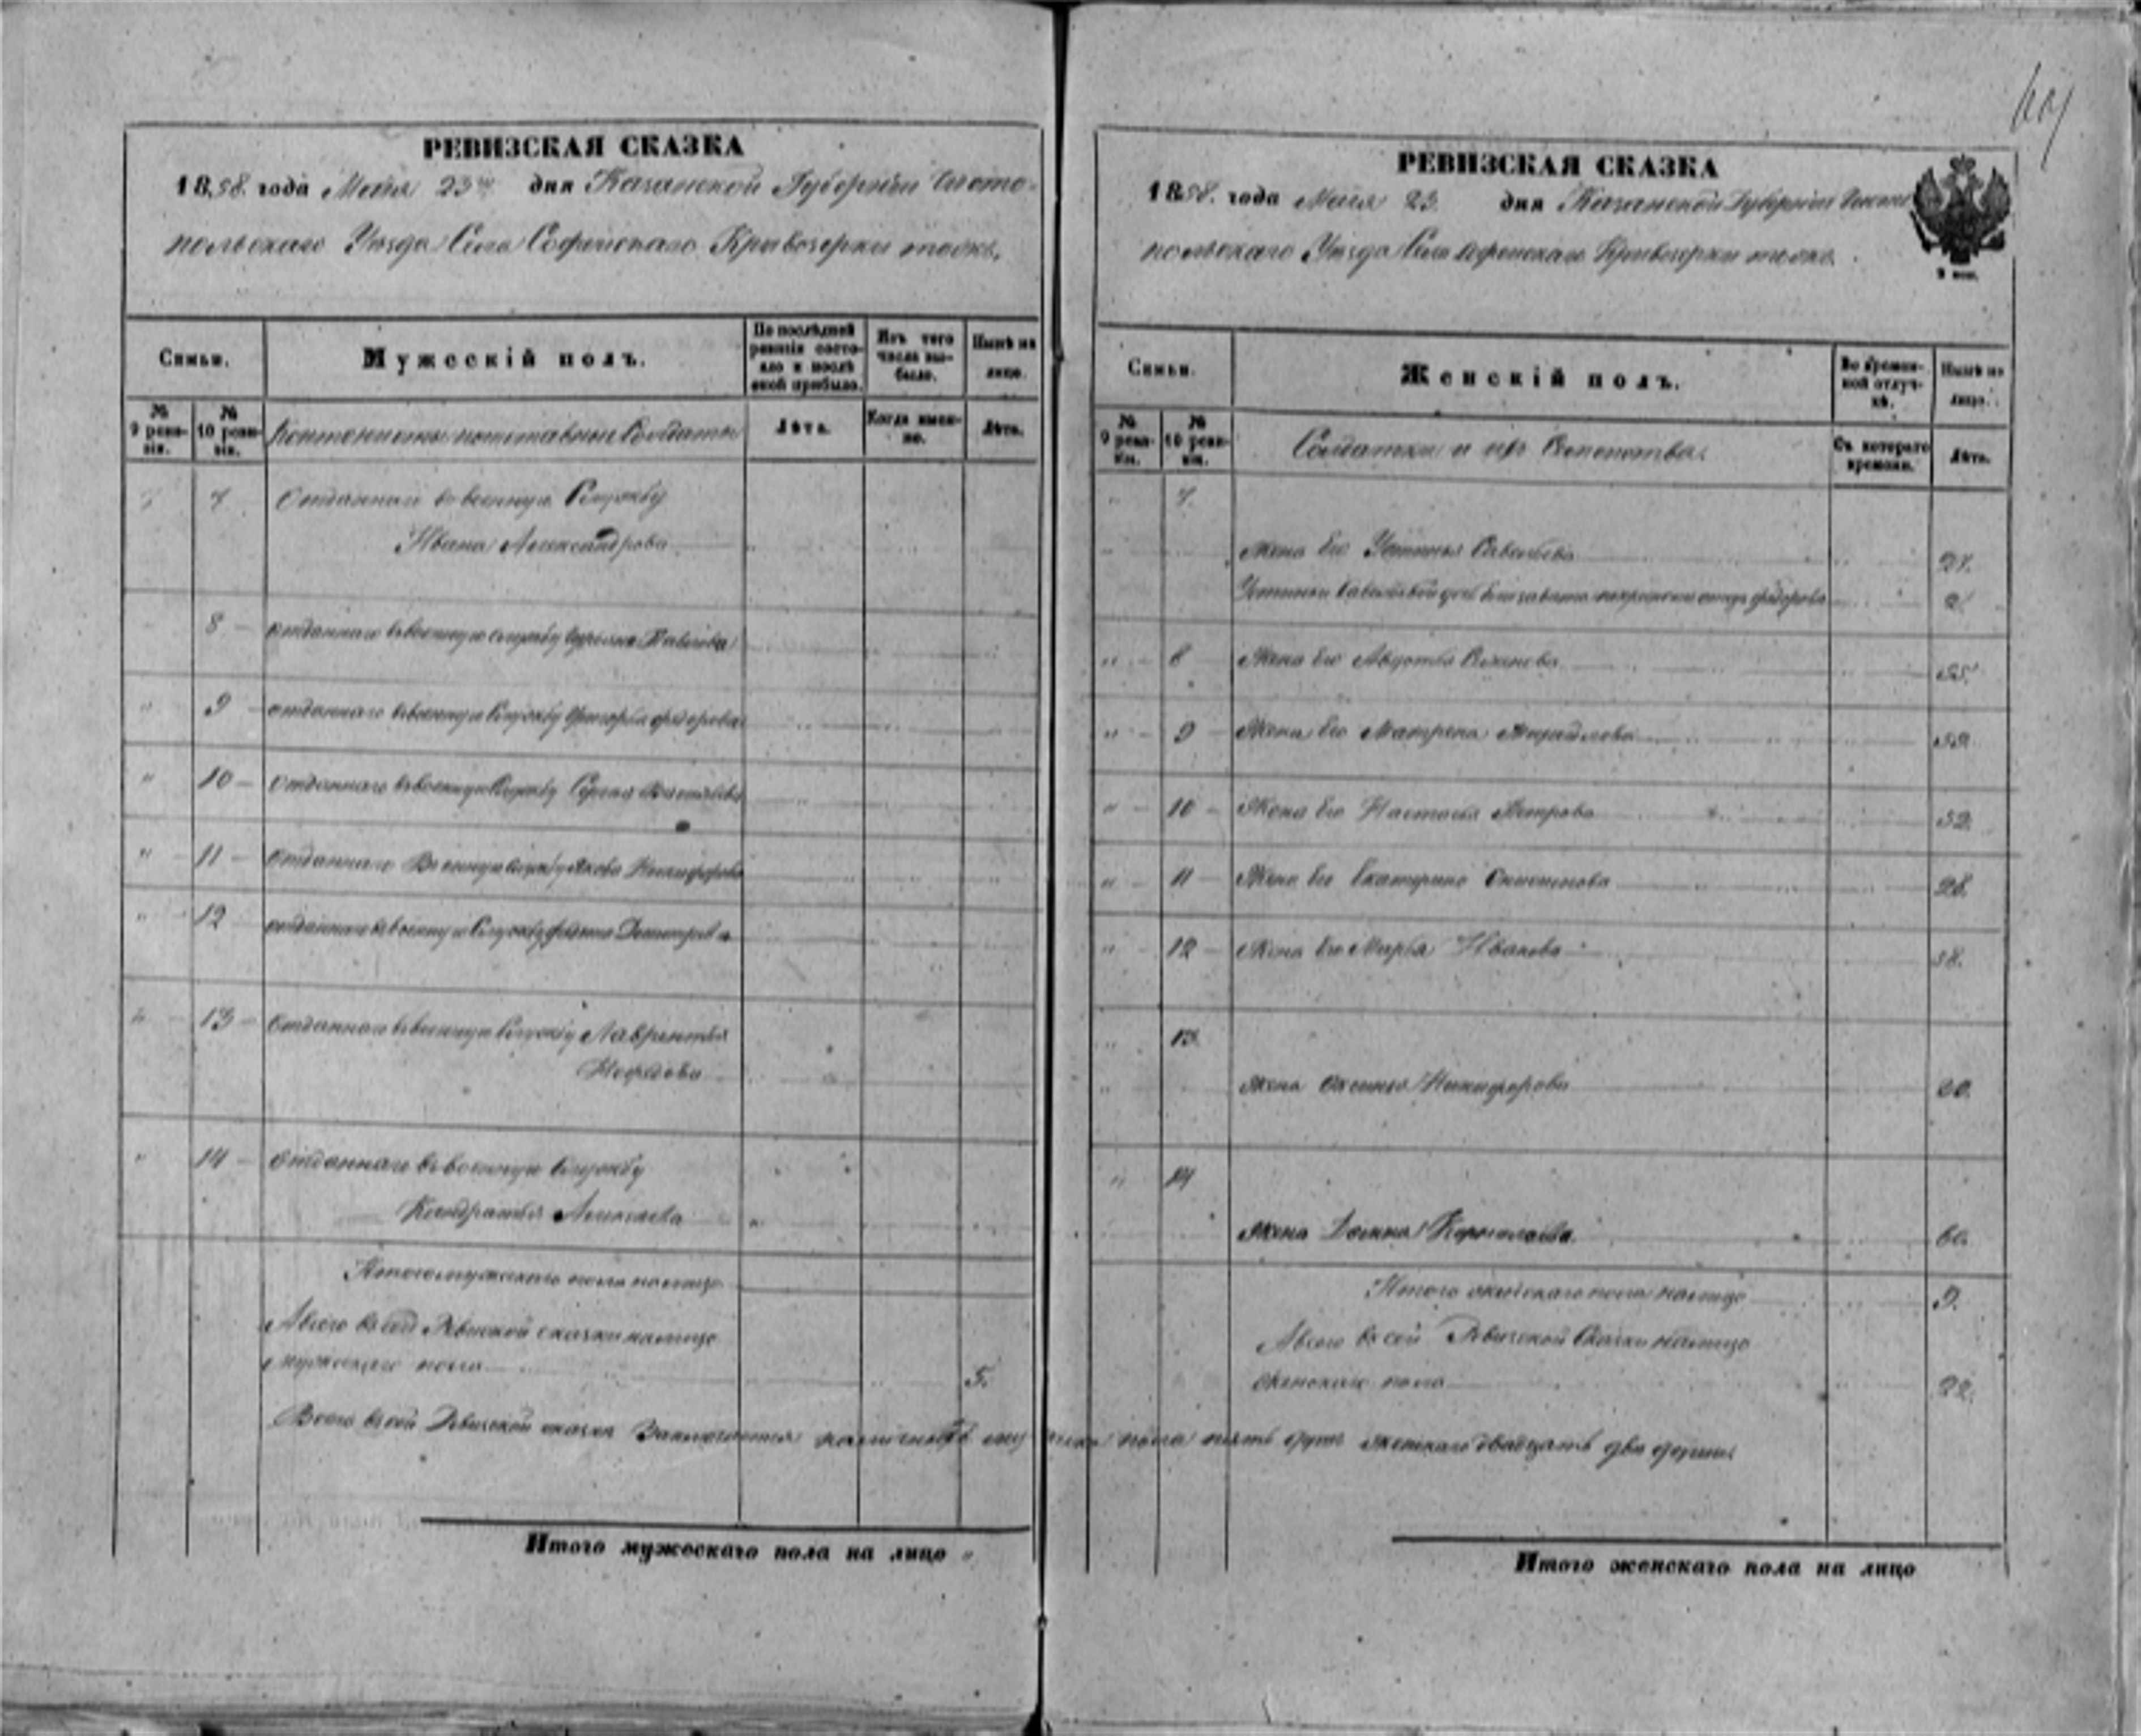 РЕВИЗСКАЯ СКАЗКА
1858. года Мая 23го дня Казанской Губерніи Чисто-
польскаго Уѣзда Села Софейскаго Кривозерки тожъ.
Семьи.
Мужескій полъ.
По послѣдней ревизіи состояло и послѣ оной прибыло.
Изъ того числа выбыло.
Нынѣ на лицо.
№ 9 ревизіи.
№ 10 ревизіи.
Кантонисты отставные Солдаты
Лѣта.
Когда именно.
Лѣта.
7 Отданнаго въ военную Службу
Ивана Александрова
8 отданнаго въ военную службу Павлова
9 отданнаго въ военную Службу Григорья Федорова
10 Отданнаго въ военную Службу Сергея
11 Отданнаго Военную Службу Якова Никифорова
12 отданнаго въ военную Службу Дмитріева
13 Отданнаго въ военную Службу Лаврентья
Нефедова
14 Отданнаго въ военную Службу
Кандратья Алексѣева
Итого мужескаго пола налицо
Всего въ сей Ревиской сказки налицо
мужескаго пола 5.
Всего въ сей Ревиской сказки Заключается наличныхъ мужеска пола пять душъ женскаго двадцать две души
Итого мужескаго пола на лицо
РЕВИЗСКАЯ СКАЗКА
1858. года Мая 23. дня Казанской Губерніи Чисто
польскаго Уѣзда Села Софейскаго Кривозерки тожъ.
Семьи.
Женскій полъ.
Во временной отлучкѣ.
Нынѣ на лицо.
№ 9 ревизіи.
№ 10 ревизіи.
Солдатки и ихъ Семейства.
Съ котораго времени.
Лѣта.
7.
Жена Его Устинья Савельева 27.
Устиньи Савельевой дочь Елизавета отцу Федорова
8 Жена Его Авдотья 55.
9 Жена Его Матрена Михайлова 52.
10 Жена Его Настасья Петрова 52.
11 Жена Его Екатерина 28.
12 Жена Его Марья Иванова 38.
13.
Жена Аксинья Никифорова 60.
14
Жена Домна 60.
Итого женскаго пола налицо 9.
Всего въ сей Ревиской Сказки налицо
Женскаго пола 22.
Итого женскаго пола на лицо